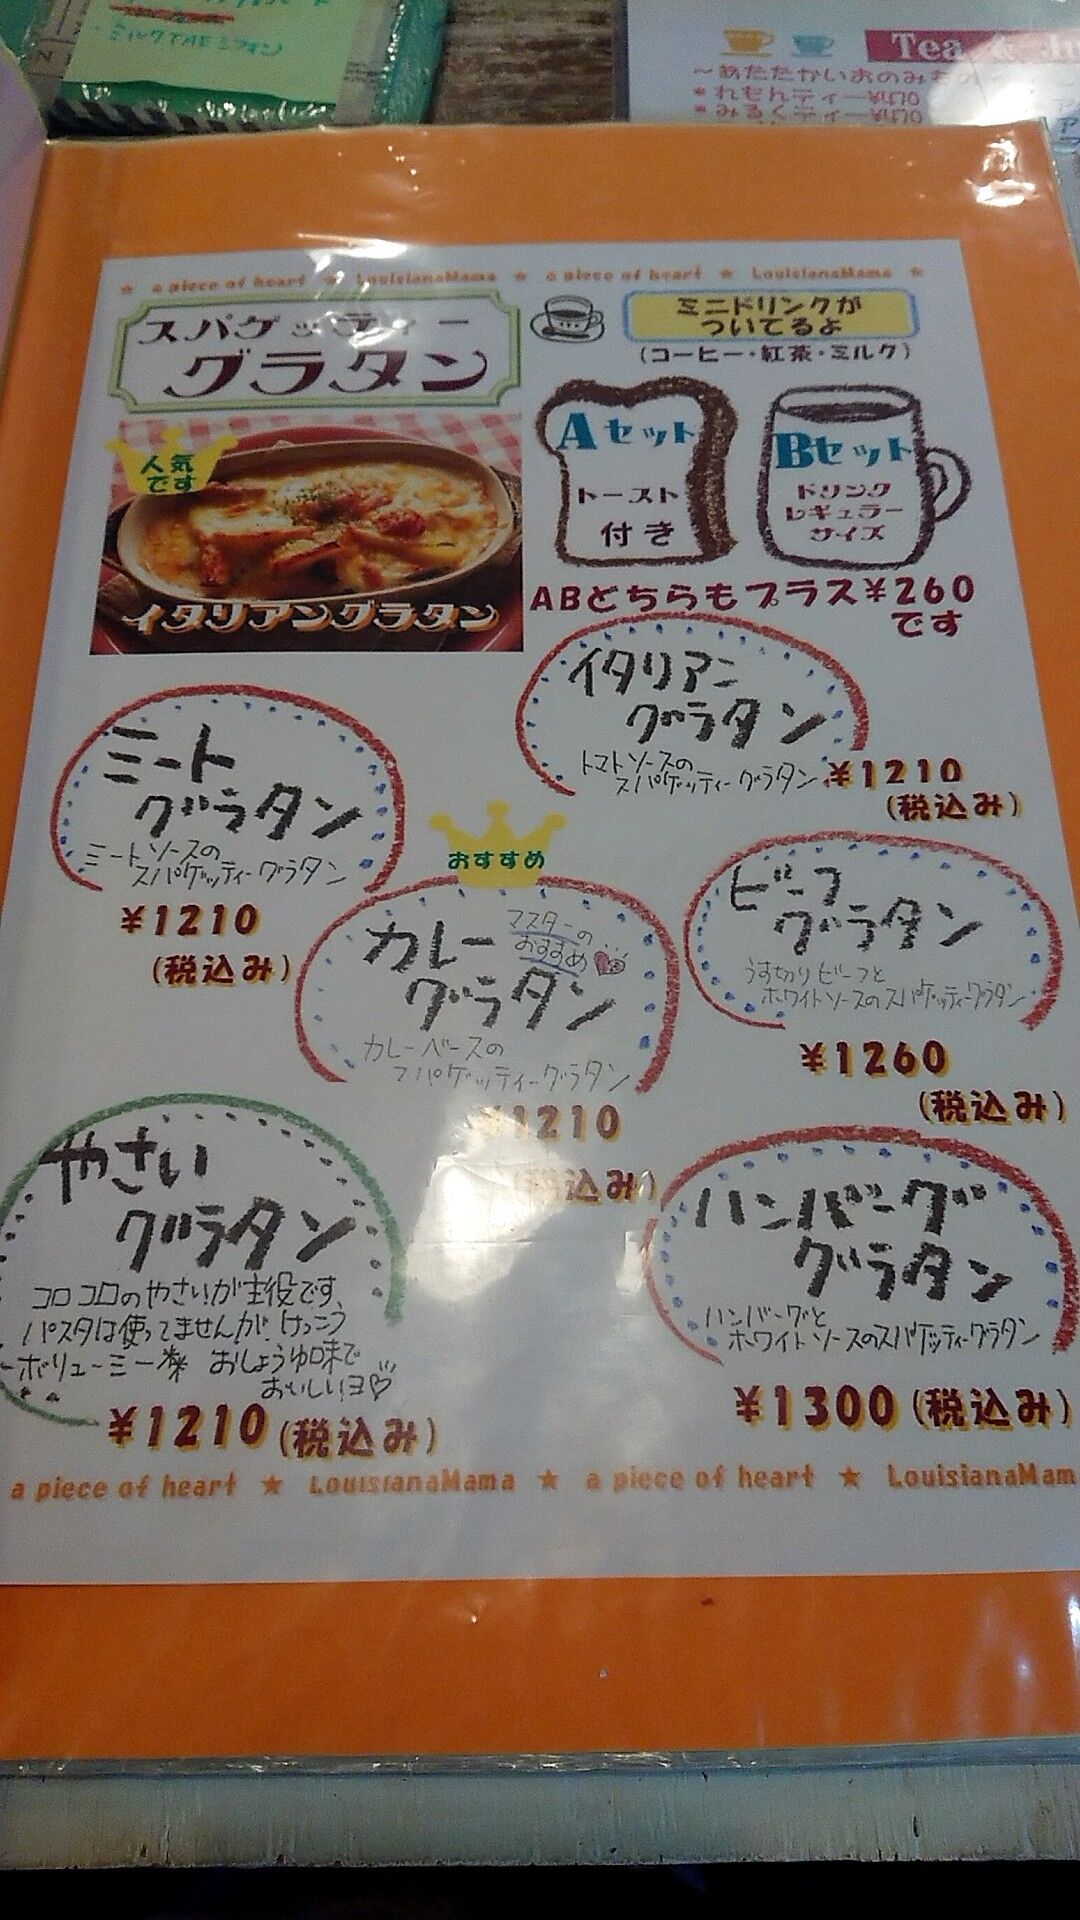 ミルクTAEミフォン
Tea & Ju
～あたたかいおのみもの
*れもんティー¥470
*みるくティー¥470
★ a piece of heart ★ LouisianaMama ★ a piece of heart ★ LouisianaMama ★
スパゲッティー
グラタン
ミニドリンクが
ついてるよ
(コーヒー・紅茶・ミルク)
人気
です
イタリアングラタン
Aセット
トースト
付き
Bセット
ドリンク
レギュラー
サイズ
ABどちらもプラス¥260
です
イタリアン
グラタン
トマトソースの
スパゲッティーグラタン
¥1210
(税込み)
ミート
グラタン
ミートソースの
スパゲッティーグラタン
¥1210
(税込み)
おすすめ
カレー
グラタン
マスターの
おすすめ
カレーベースの
スパゲッティーグラタン
¥1210
(税込み)
ビーフ
グラタン
うす切りビーフと
ホワイトソースのスパゲッティーグラタン
¥1260
(税込み)
やさい
グラタン
コロコロのやさいが主役です、
パスタは使ってませんが、けっこう
ボリューミー** おしょうゆ味で
おいしいヨ♡
¥1210 (税込み)
ハンバーグ
グラタン
ハンバーグと
ホワイトソースのスパゲッティーグラタン
¥1300 (税込み)
a piece of heart ★ LouisianaMama ★ a piece of heart ★ LouisianaMam